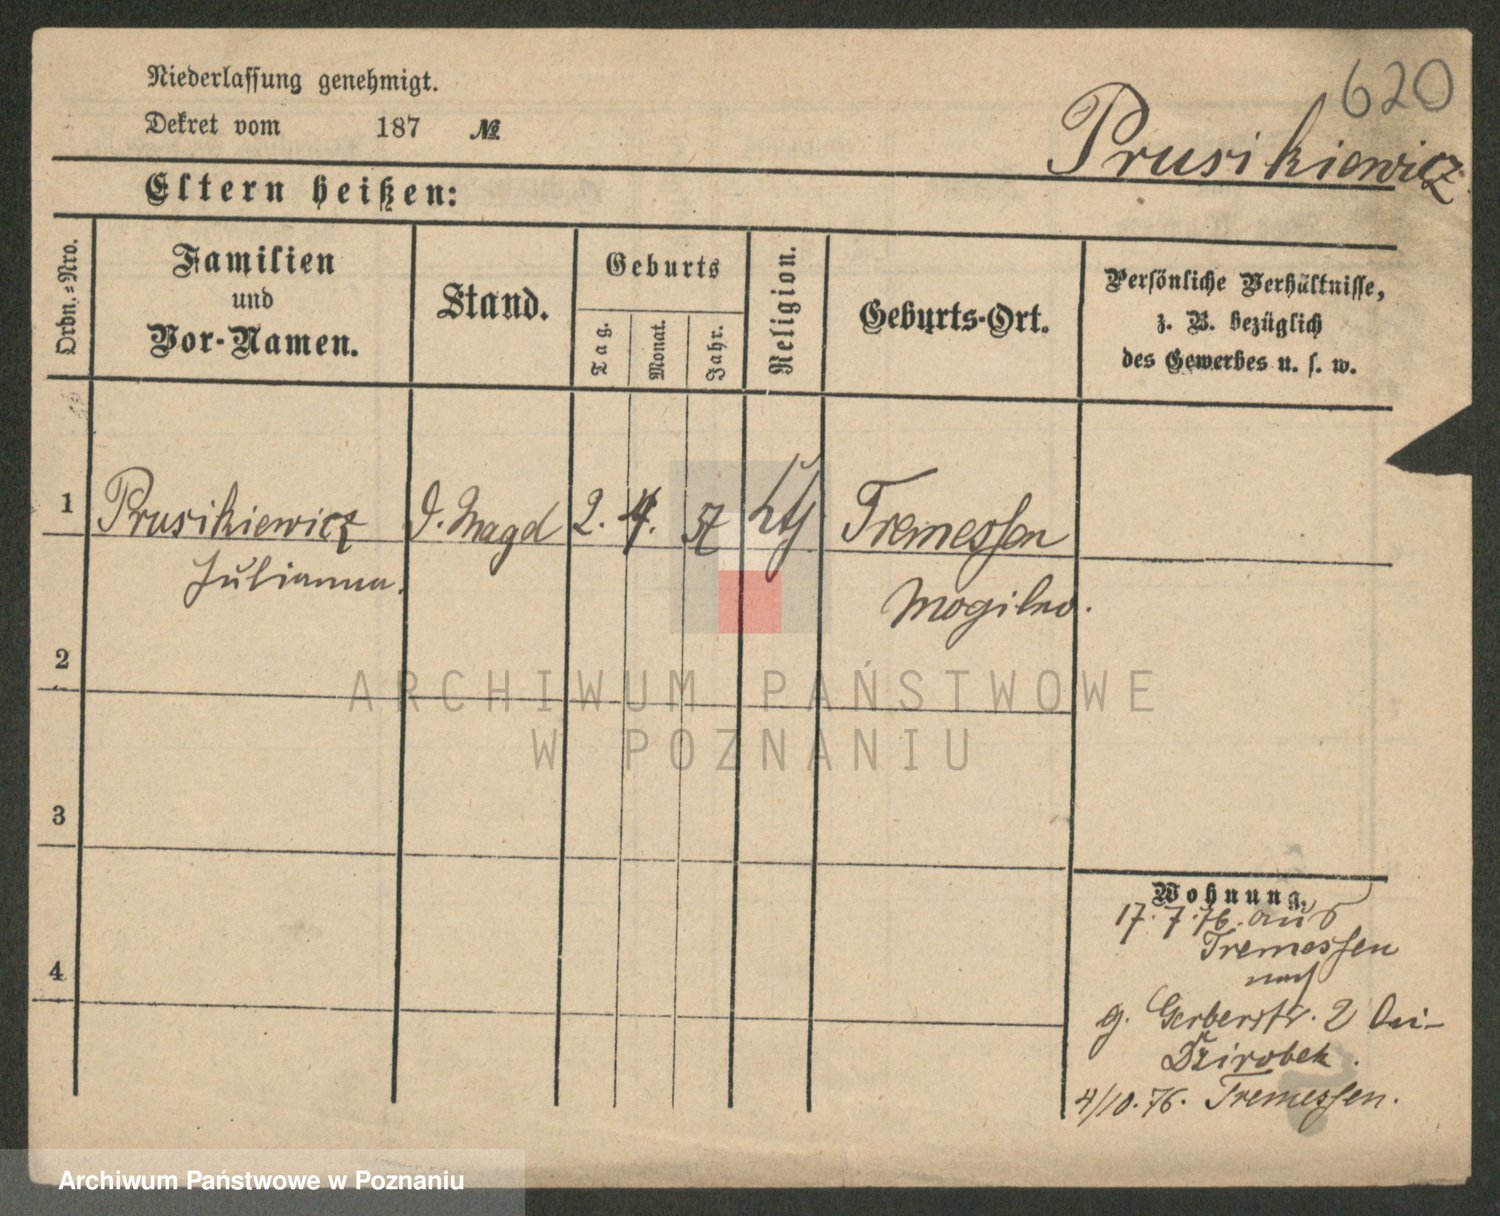 620
Niederlassung genehmigt.
Dekret vom 187 №
Prusikiewicz
Eltern heißen:
Ordn.=Nro.
Familien
und
Vor-Namen.
Stand.
Geburts
Tag.
Monat.
Jahr.
Religion.
Geburts-Ort.
Persönliche Verhältnisse,
z. B. bezüglich
des Gewerbes u. s. w.
1 Prusikiewicz d. Magd 2. 4. 57 kth Tremessen
Julianna. Mogilno.
2
3
4
Wohnung.
17. 7. 76. aus
Tremessen
nach
g. Gerberstr. 2 bei
Dzirobek.
4/10. 76. Tremessen.
ARCHIWUM PAŃSTWOWE
W POZNANIU
Archiwum Państwowe w Poznaniu